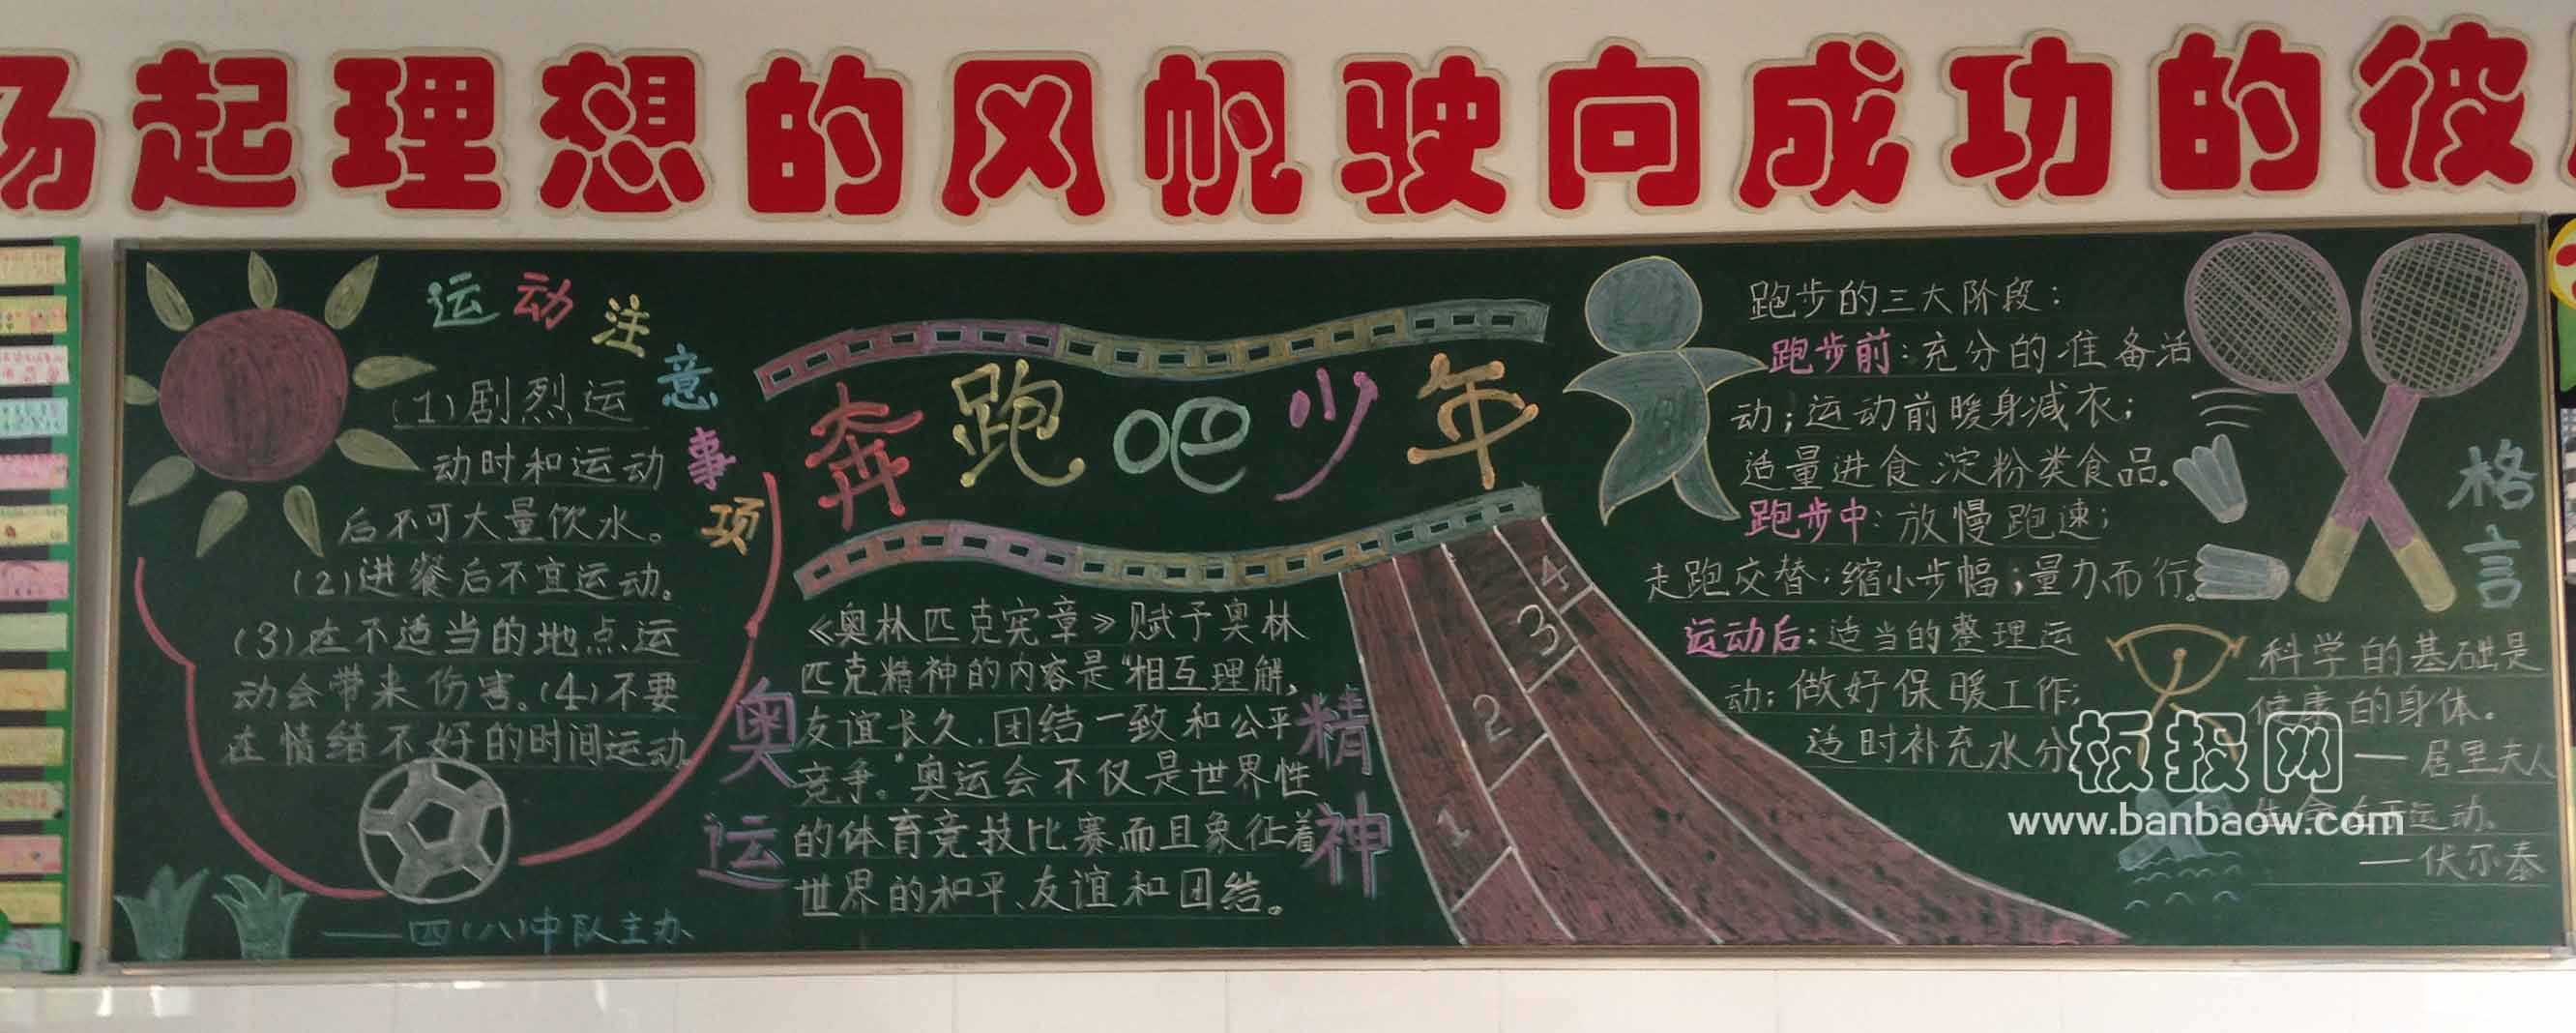 扬起理想的风帆驶向成功的彼
运动注意事项
(1)剧烈运
动时和运动
后不可大量饮水。
(2)进餐后不宜运动。
(3)在不适当的地点运
动会带来伤害。(4)不要
在情绪不好的时间运动
——四(八)中队主办
奔跑吧少年
奥运精神
《奥林匹克宪章》赋予奥林
匹克精神的内容是“相互理解,
友谊长久,团结一致和公平
竞争。”奥运会不仅是世界性
的体育竞技比赛,而且象征着
世界的和平、友谊和团结。
1
2
3
4
跑步的三大阶段:
跑步前:充分的准备活
动;运动前暖身减衣;
适量进食淀粉类食品。
跑步中:放慢跑速;
走跑交替;缩小步幅;量力而行。
运动后:适当的整理运
动;做好保暖工作;
适时补充水分
格言
科学的基础是
健康的身体.
——居里夫人
生命在于运动、
——伏尔泰
板报网
www.banbaow.com